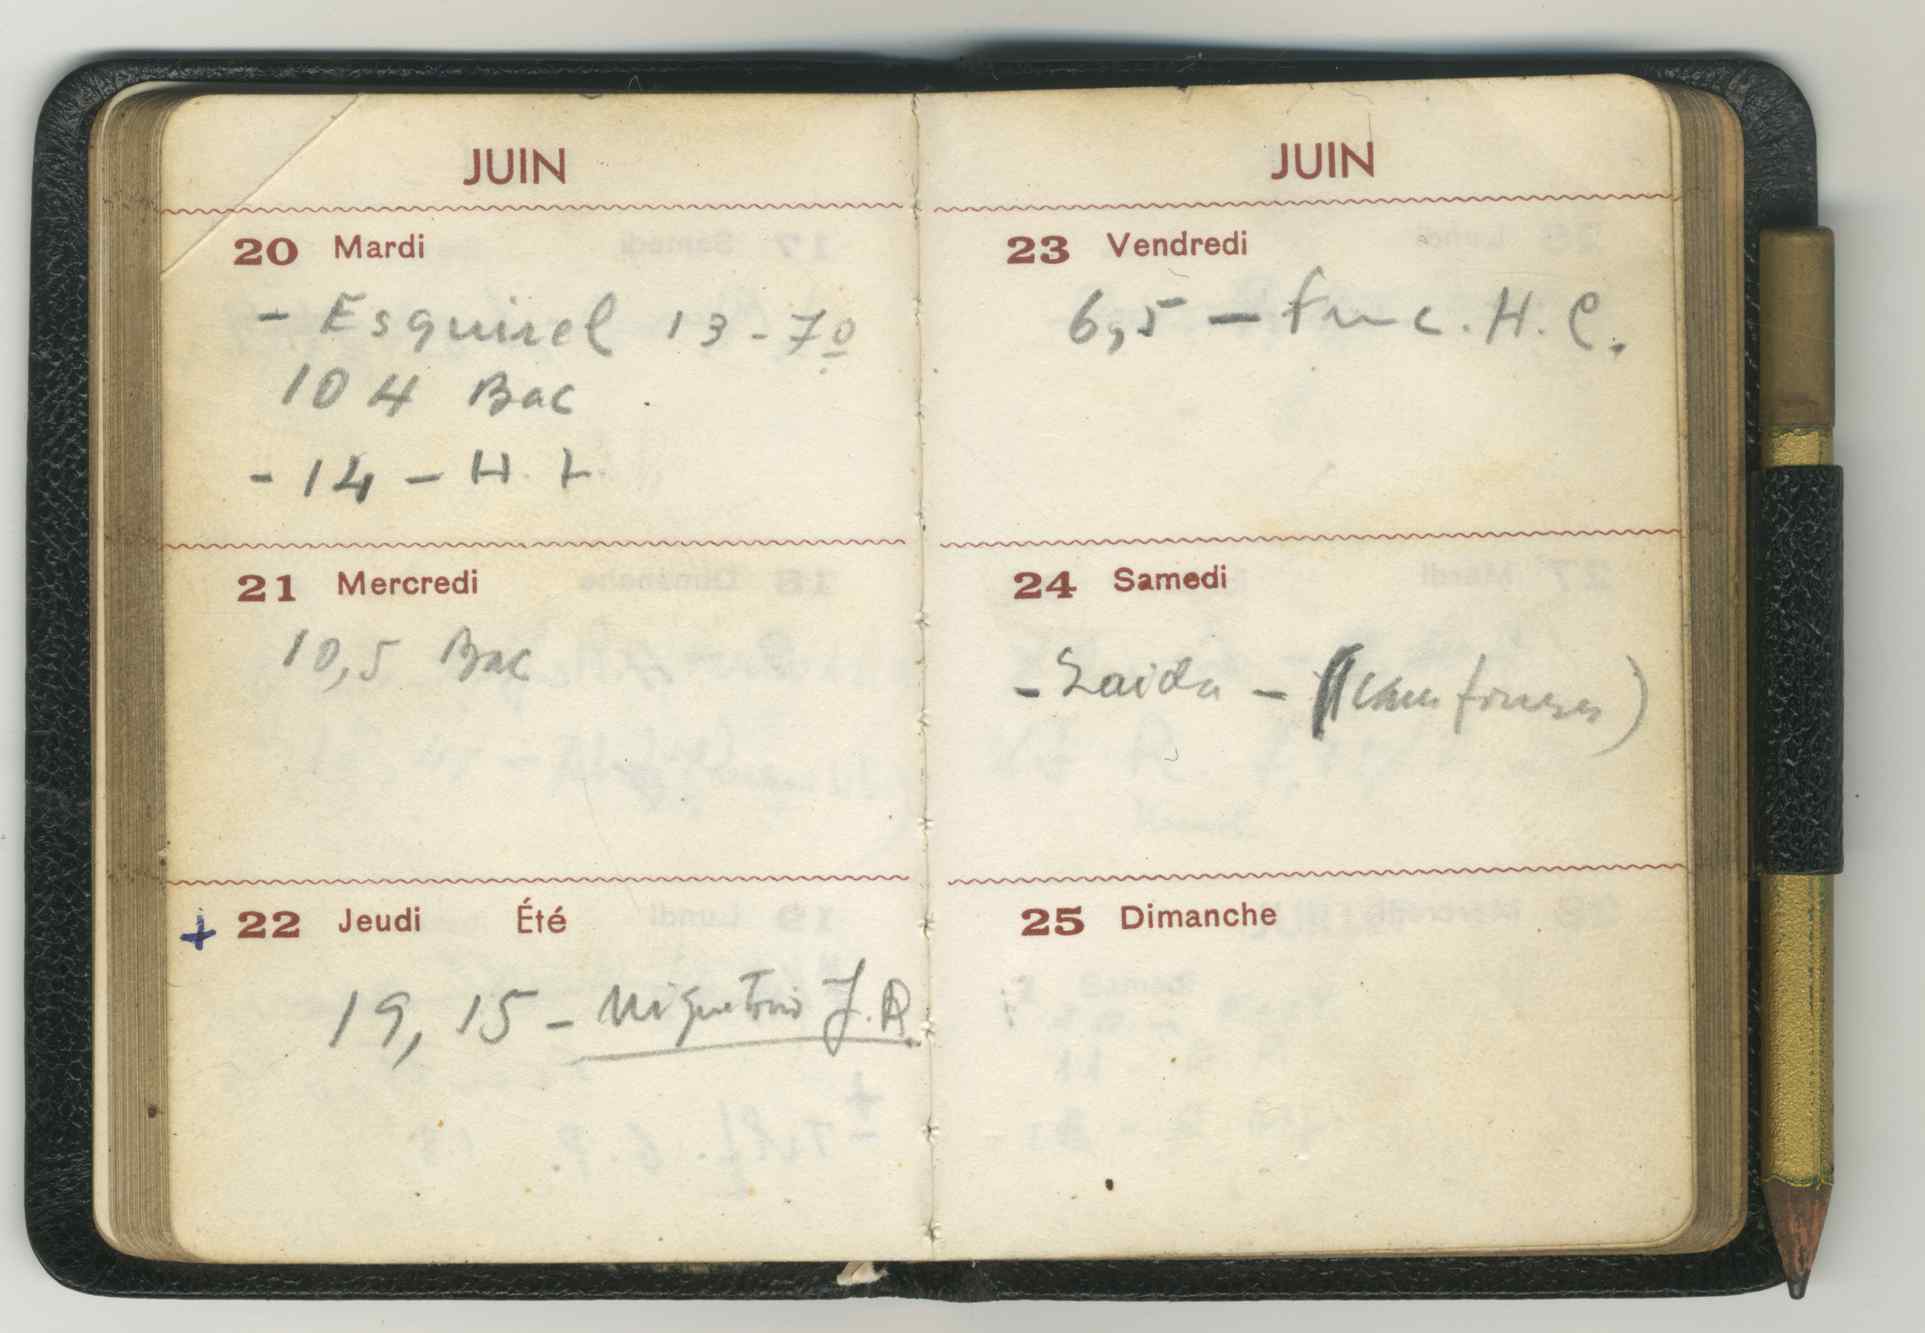 JUIN
20 Mardi
- Esquirel 13-7º
104 Bac
- 14 - H. L.
21 Mercredi
10,5 Bac
+ 22 Jeudi Été
19, 15 - J. R.
JUIN
23 Vendredi
6,5 - H. C.
24 Samedi
- Saida -
25 Dimanche